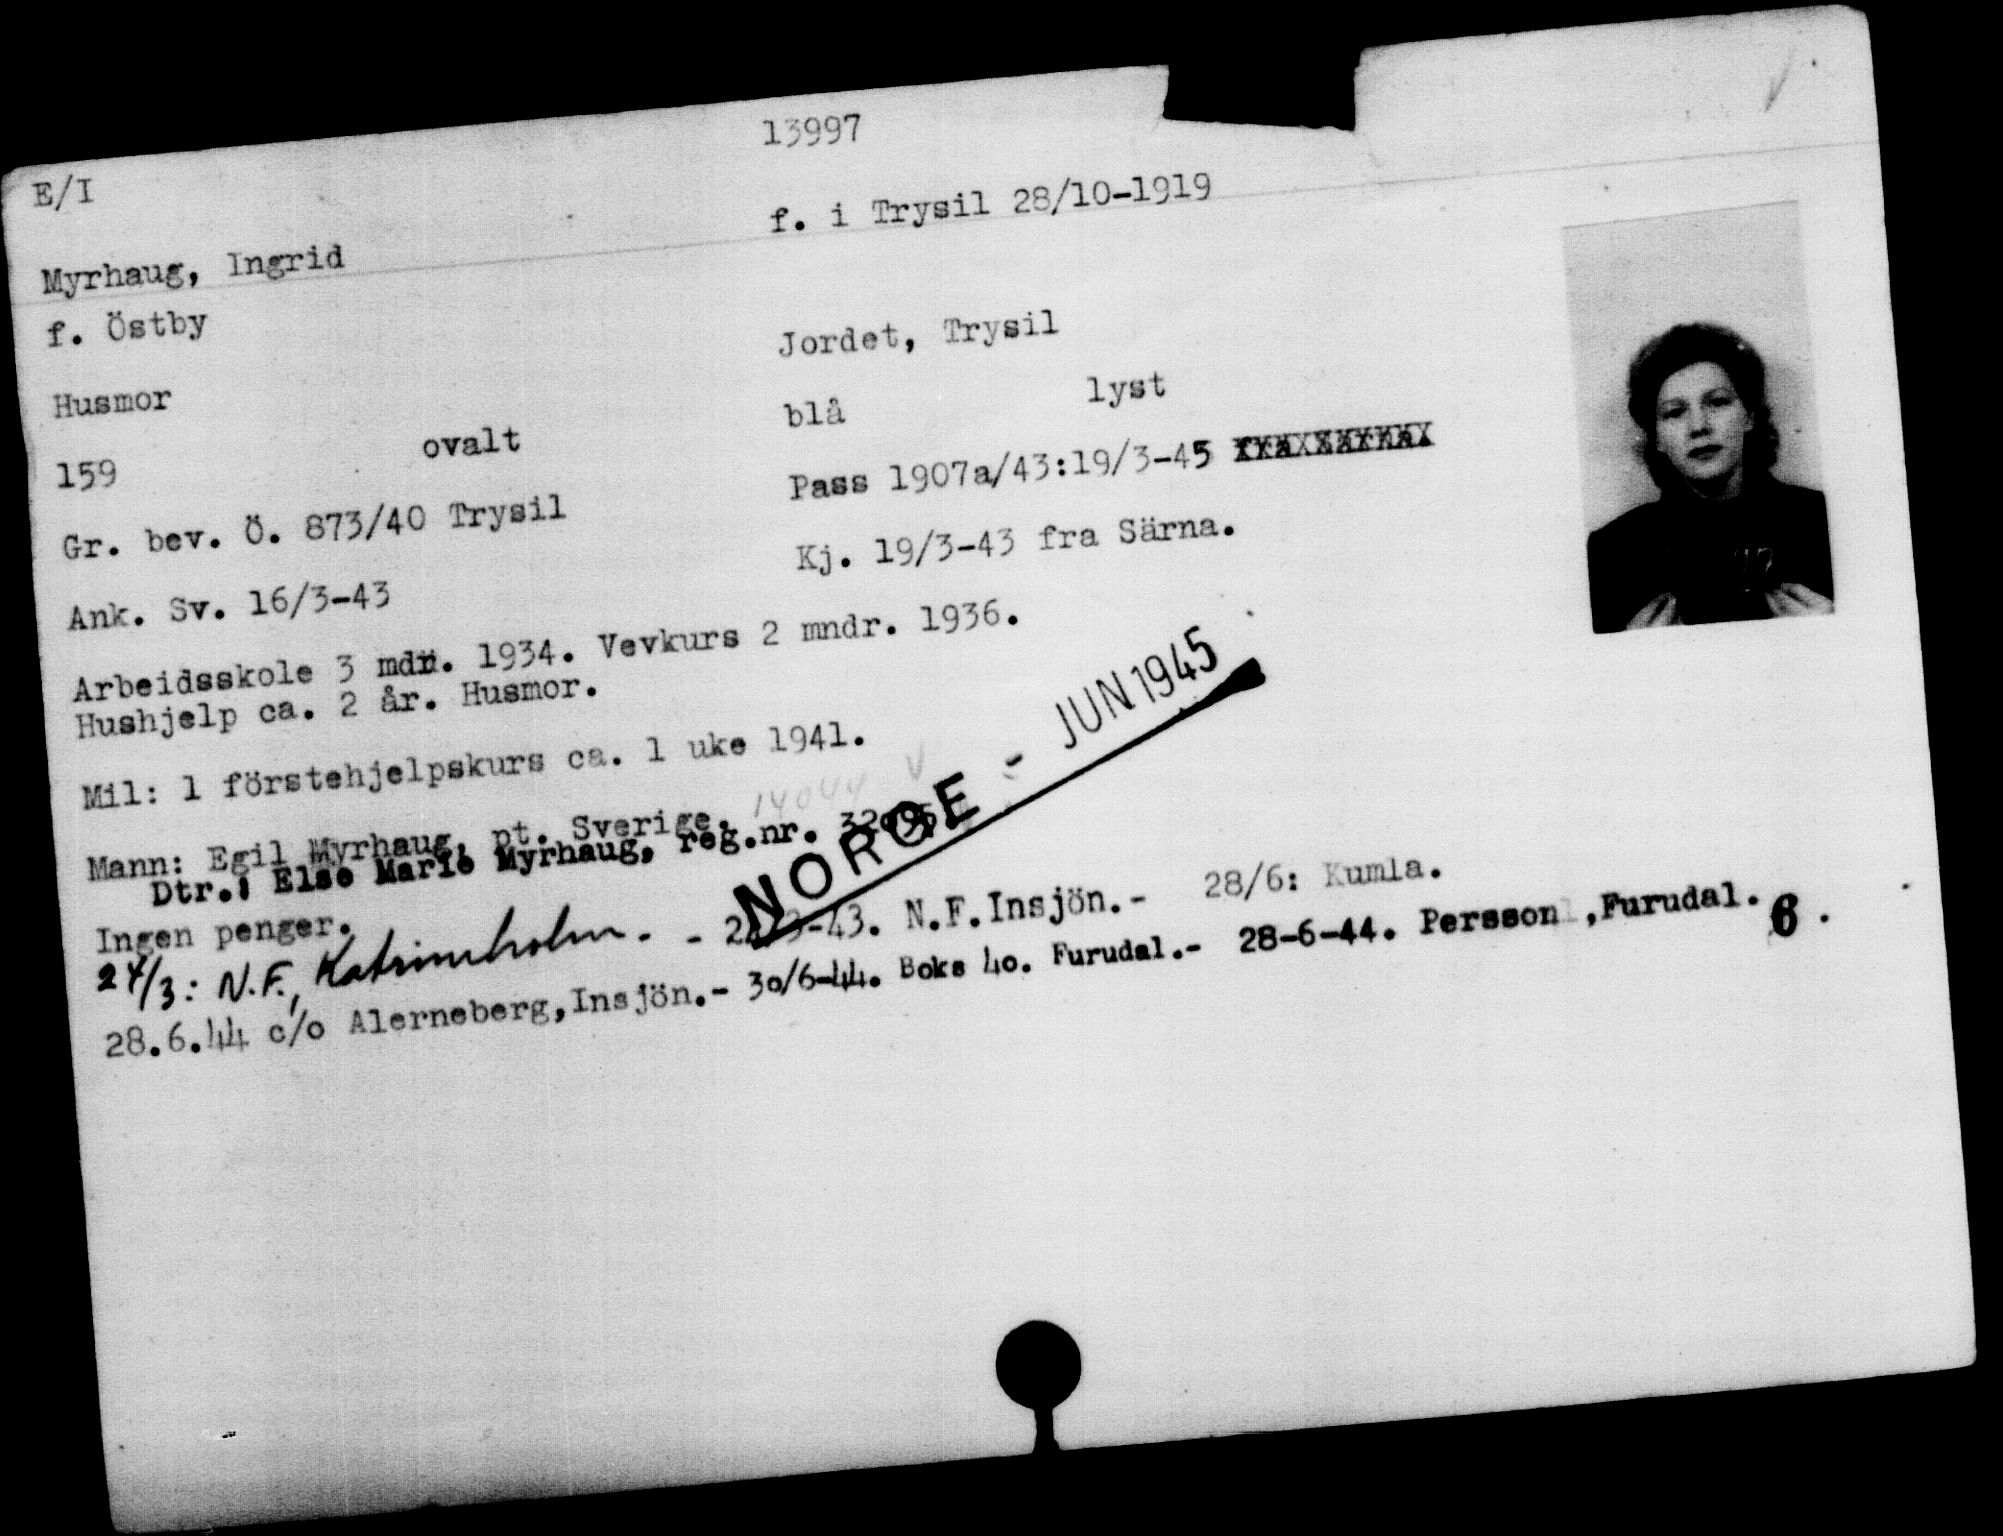 13997
E/I
f. i Trysil 28/10-1919
Myrhaug, Ingrid
f. Östby
Jordet, Trysil
Husmor
blå lyst
159 ovalt
Pass 1907a/43:19/3-45
Gr. bev. Ö. 873/40 Trysil
Kj. 19/3-43 fra Särna.
Ank. Sv. 16/3-43
Arbeidsskole 3 mdn. 1934. Vevkurs 2 mndr. 1936.
Hushjelp ca. 2 år. Husmor.
Mil: 1 förstehjelpskurs ca. 1 uke 1941.
14044 V
NORGE - JUN 1945
Mann: Egil Myrhaug, pt. Sverige.
Dtr.: Else Marie Myrhaug, reg.nr.
Ingen penger.
24/3: N.F., Katrineholm. - N.F.Insjön.- 28/6: Kumla.
28.6.44 c/o Alerneberg,Insjön.- 30/6-44. Boks 40. Furudal.- 28-6-44. Persson ,Furudal. 6.